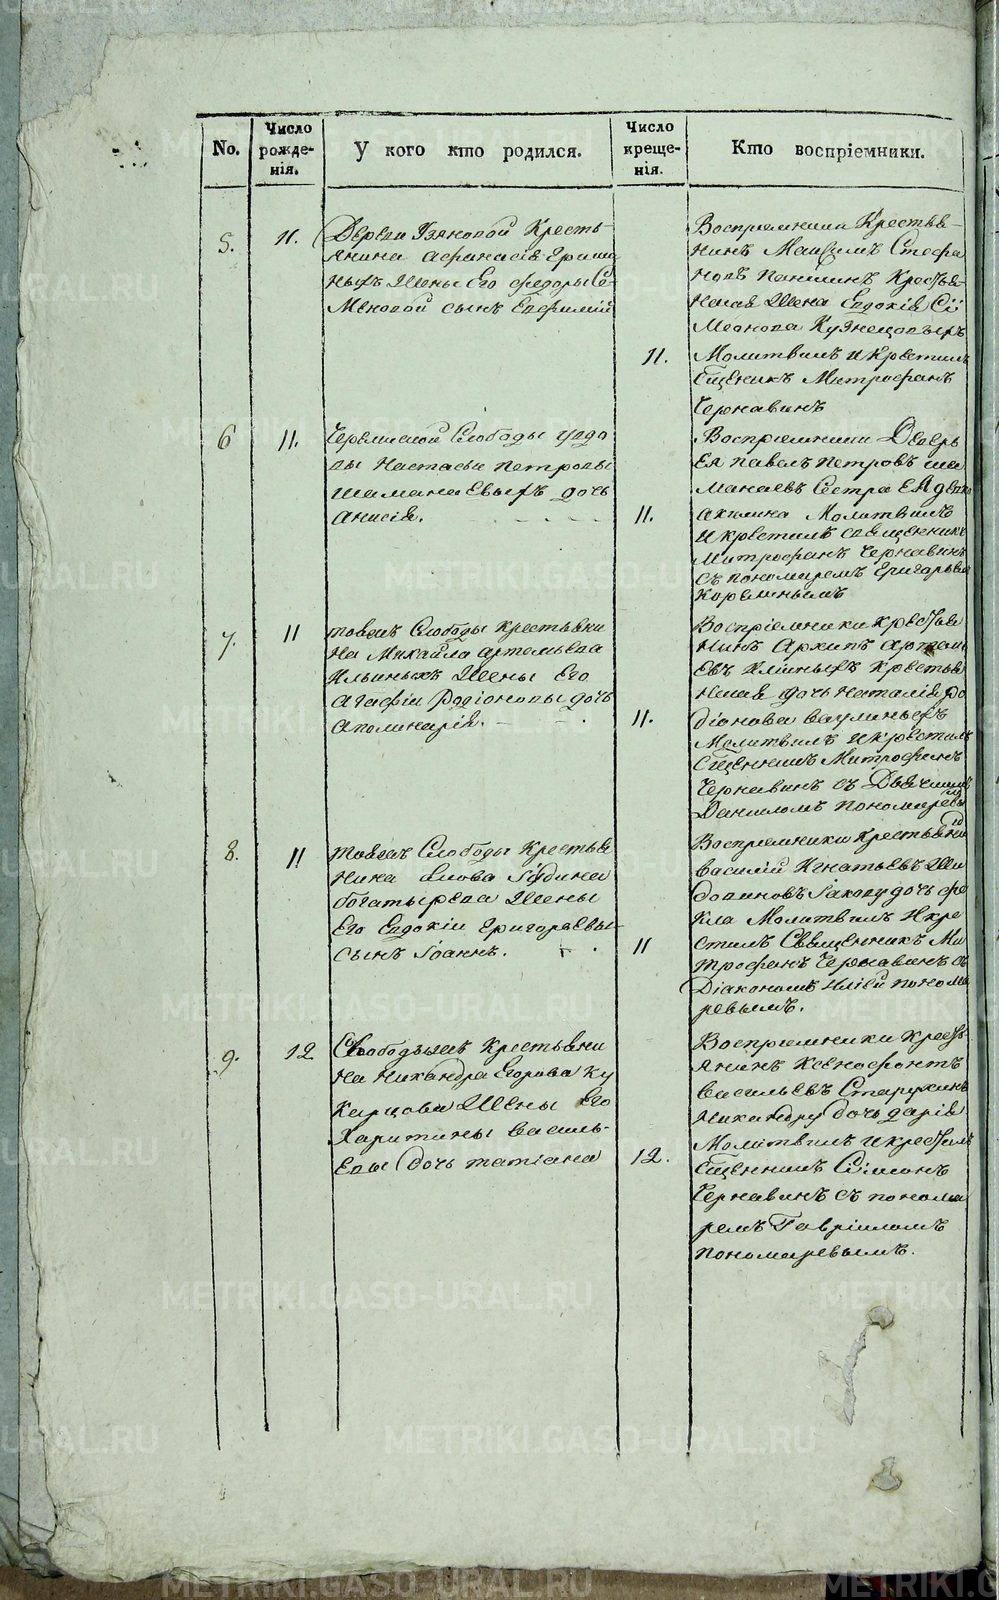 No.
Число рожде-нія.
У кого кто родился.
Число креще-нія.
Кто воспріемники.
5.
11.
Деревни Узяновой Кресть-
янина Афанасія Гриши
ныхъ Жены Его Федоры Се
Меновой сынъ Евфимій
11.
Воспріемники Крестья-
нинъ Максимъ Стефа
новъ Панинъ Крестья-
ская Жена Евдокія Сі
Меонова Кузнецовыхъ
Молитвилъ и Крестилъ
Сщенникъ Митрофанъ
Чернавинъ
6
11.
Слободы вдо
вы Настасьи Петровы
Шаманаевыхъ дочь
Анисія.
11.
Воспріемники Деверь
Ея Павелъ Петровъ ша
манаевъ Сестра Ея девка
Акилина Молитвилъ
и крестилъ священникъ
Митрофанъ Чернавинъ
съ пономаремъ Григорьем
7.
11
тояжъ Слободы крестьяни
на Михайла Артемьева
Ильиныхъ Жены Его
Агафіи Родіоновы дочь
Аполинарія.
11.
Воспріемники крестья
нинъ Архипъ Артемь
евъ Ильиныхъ крестья
ская дочь Наталія Ро
діонова Ваулиныхъ
Молитвилъ и крестилъ
Сщенникъ Митрофанъ
Чернавинъ съ Дьячкомъ
Даниломъ Пономаревы
8.
11
тояжъ Слободы Крестья
Нина Якова Іудина
богатырева Жены
Его Евдокіи Григорьевы
сынъ Іоаннъ.
11
Воспріемники крестьяни
Василій Игнатьевъ Ши
Іакову дочь Фе
кла Молитвилъ и кре
стилъ Священникъ Ми
трофанъ Чернавинъ съ
Діакономъ Иліей понома
ревымъ.
9.
12
Слободы Крестьяни
на Никандра Егорова Ку
карцова Жены Его
Харитины Василь-
Евы дочь татіана
12.
Воспріемники Кресть-
янинъ Ксенофонтъ
Васильевъ Старухинъ
Никандру дочь дарія
Молитвилъ и крестилъ
Сщенникъ Сімеонъ
Чернавинъ съ понома
ремъ Гавріиломъ
Пономаревымъ.
METRIKI.GASO-URAL.RU